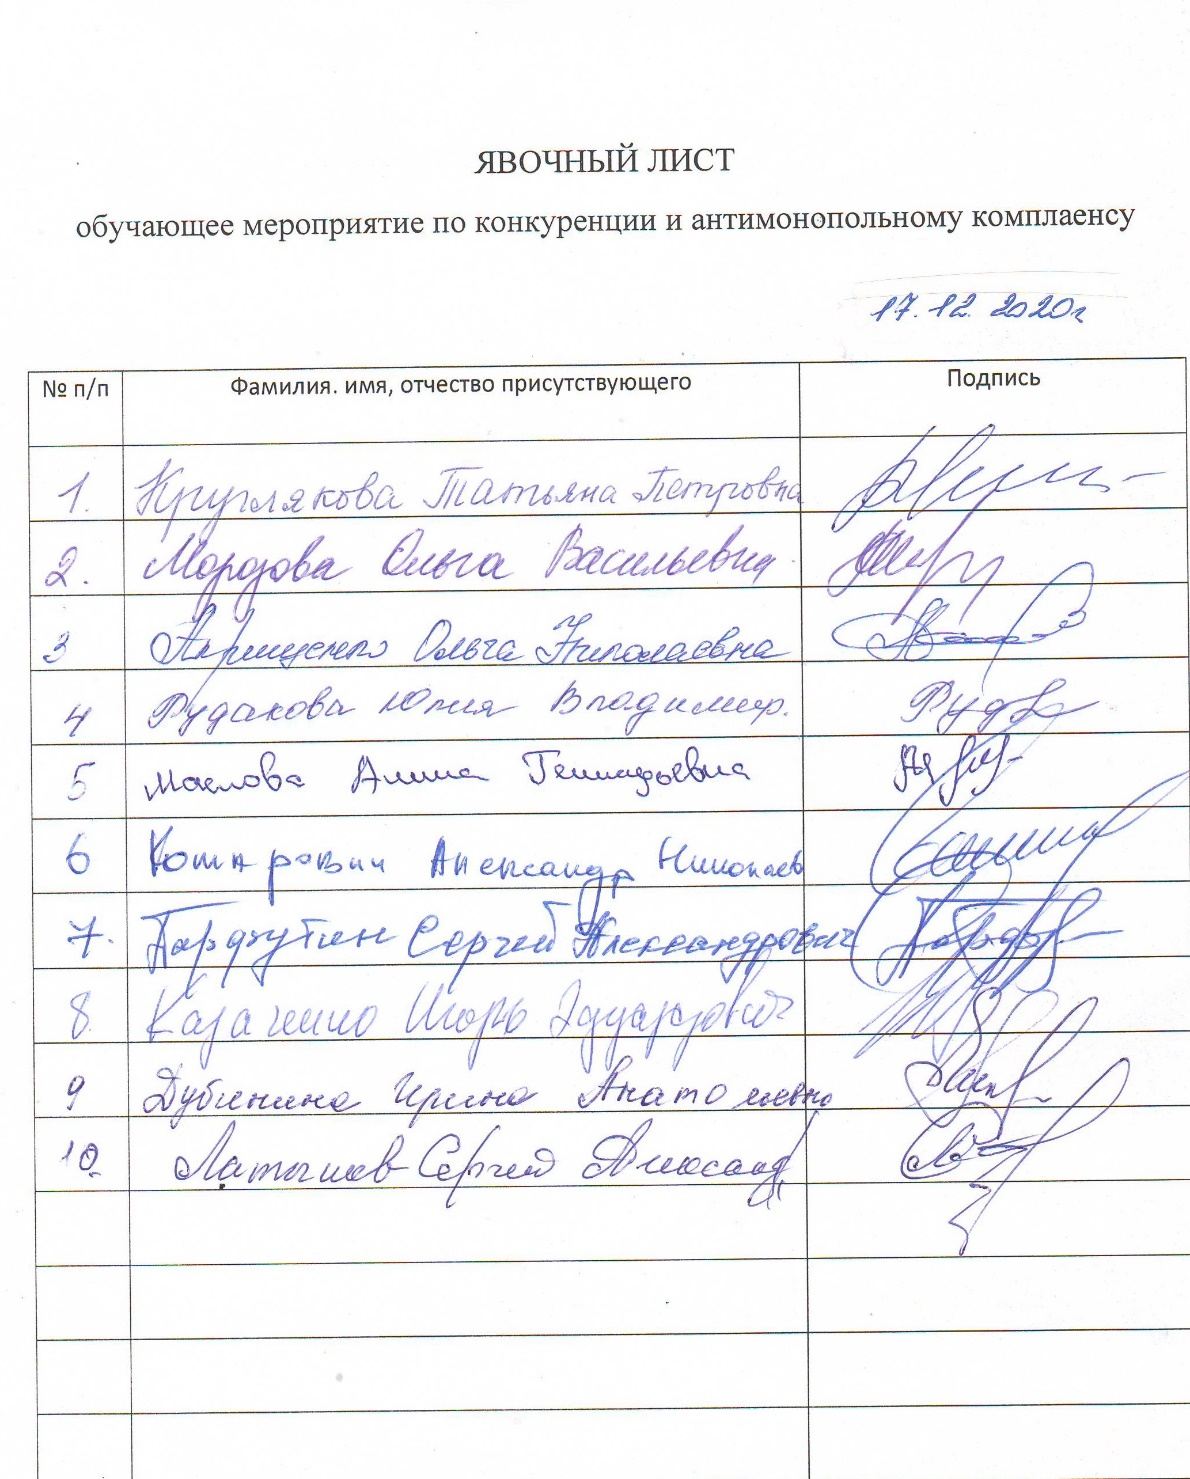 ЯВОЧНЫЙ ЛИСТ
обучающее мероприятие по конкуренции и антимонопольному комплаенсу
17.12.2020г
№ п/п Фамилия. имя, отчество присутствующего Подпись
1. Круглякова Татьяна Петровна
2. Морозова Ольга Васильевна
3 Ольга Николаевна
4 Рудакова Юлия Владимир.
5 Маслова Алина Геннадьевна
6 Александр Николаев
7. Сергей Александрович
8 Игорь Эдуардович
9 Дубинина Ирина Анатольевна
10. Латышев Сергей Александр